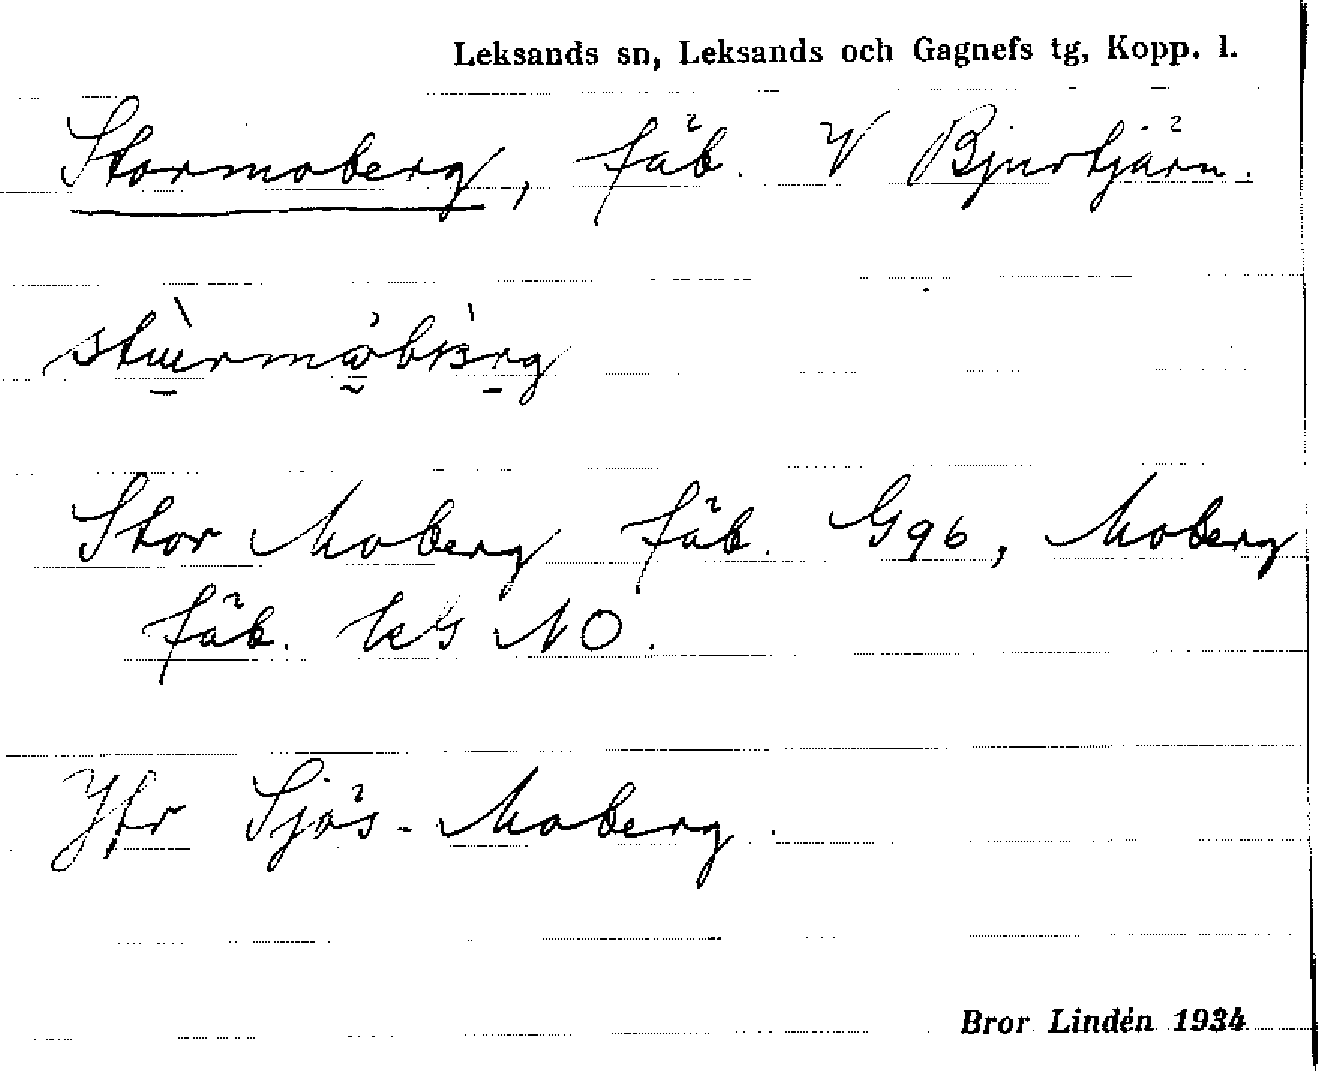 Leksands sn, Leksands och Gagnefs tg, Kopp. l.
Stormoberg, fäb. V Bjurtjärn.
Stor Moberg fäb. G96, Moberg
fäb. kG NO.
Jfr Sjös-Moberg.
Bror Lindén 1934